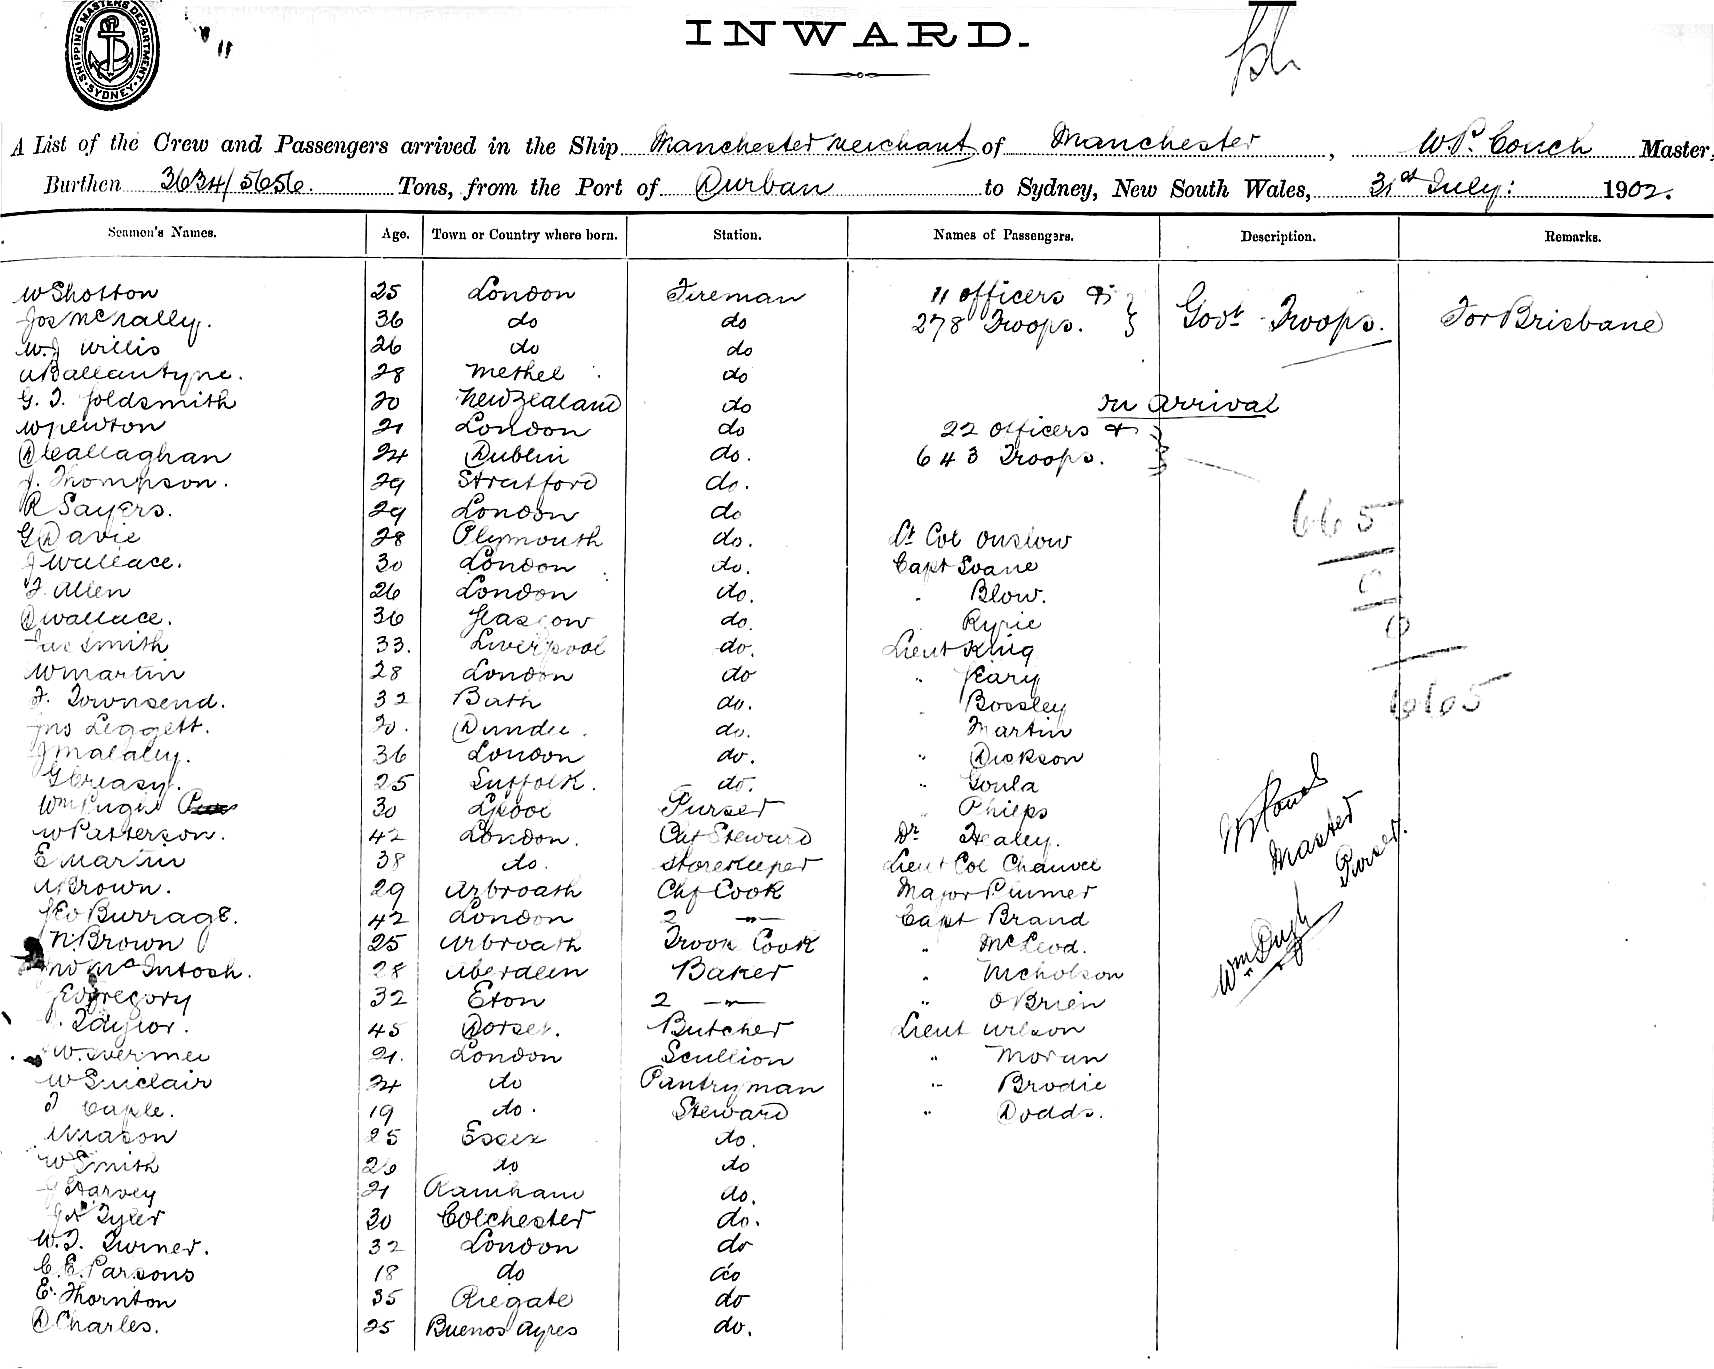 SHIPPING MASTERS DEPARTMENT SYDNEY
INWARD.
A List of the Crew and Passengers arrived in the Ship Manchester Merchant of Manchester, W P. Couch Master,
Burthen 3634/5656. Tons, from the Port of Durban to Sydney, New South Wales, 31st July: 1902.
Seamen's Names. Age. Town or Country where born. Station. Names of Passengers. Description. Remarks.
W Shotton 25 London Fireman 11 officers &
Jos McNally. 36 do do 278 Troops. Govt Troops. For Brisbane
W.J Willis 26 do do
A Ballantyne. 28 Methel do
G. T. Goldsmith 20 New Zealand do On Arrival
W Newton 21 London do 22 Officers &
D Callaghan 24 Dublin do. 643 Troops.
J. Thompson. 29 Stratford do.
R Sayers. 29 London do 665
G Davie 28 Plymouth do. Lt Col Onslow
J Wallace. 30 London do. Capt Soane
T. Allen 26 London do. " Blow.
D Wallace. 36 Glasgow do. " Ryrie
Jas Smith 33. Liverpool do. Lieut King
W Martin 28 London do " Geary
F. Townsend. 32 Bath do. " Bossley 665
Jno Leggett. 30. Dundee. do. Martin
J Malaley. 36 London do. " Dickson
G Creasy. 25 Suffolk. do. " Goula
Wm Pugh 30 Lpool Purser " Phieps
W Patterson. 42 London. Chf Steward Dr Healey.
E Martin 38 do. Storekeeper Lieut Col Chauvel
A Brown. 29 Arbroath Chf Cook Major Plumer
Geo Burrage. 42 London 2 —"— Capt Brand
N. Brown 25 Arbroath Troop Cook " McLeod.
Jno McIntosh. 28 Aberdeen Baker " Nicholson
Geo Gregory 32 Eton 2 —"— " O Brien
Taylor. 45 Dorset. Butcher Lieut Wilson
W. 21. London Scullion " Moran
W Sinclair 24 do Pantryman " Brodie
T Caple. 19 do. Steward " Dodds.
A Mason 25 Essex do.
W Smith 26 do do
Harvey 21 Rainham do.
Tyler 30 Colchester do.
W. T. Turner. 32 London do
C. E. Parsons 18 do do
E. Thornton 35 Riegate do
D Charles. 25 Buenos Ayres do.
W P Couch
Master
Wm Pugh
Purser.